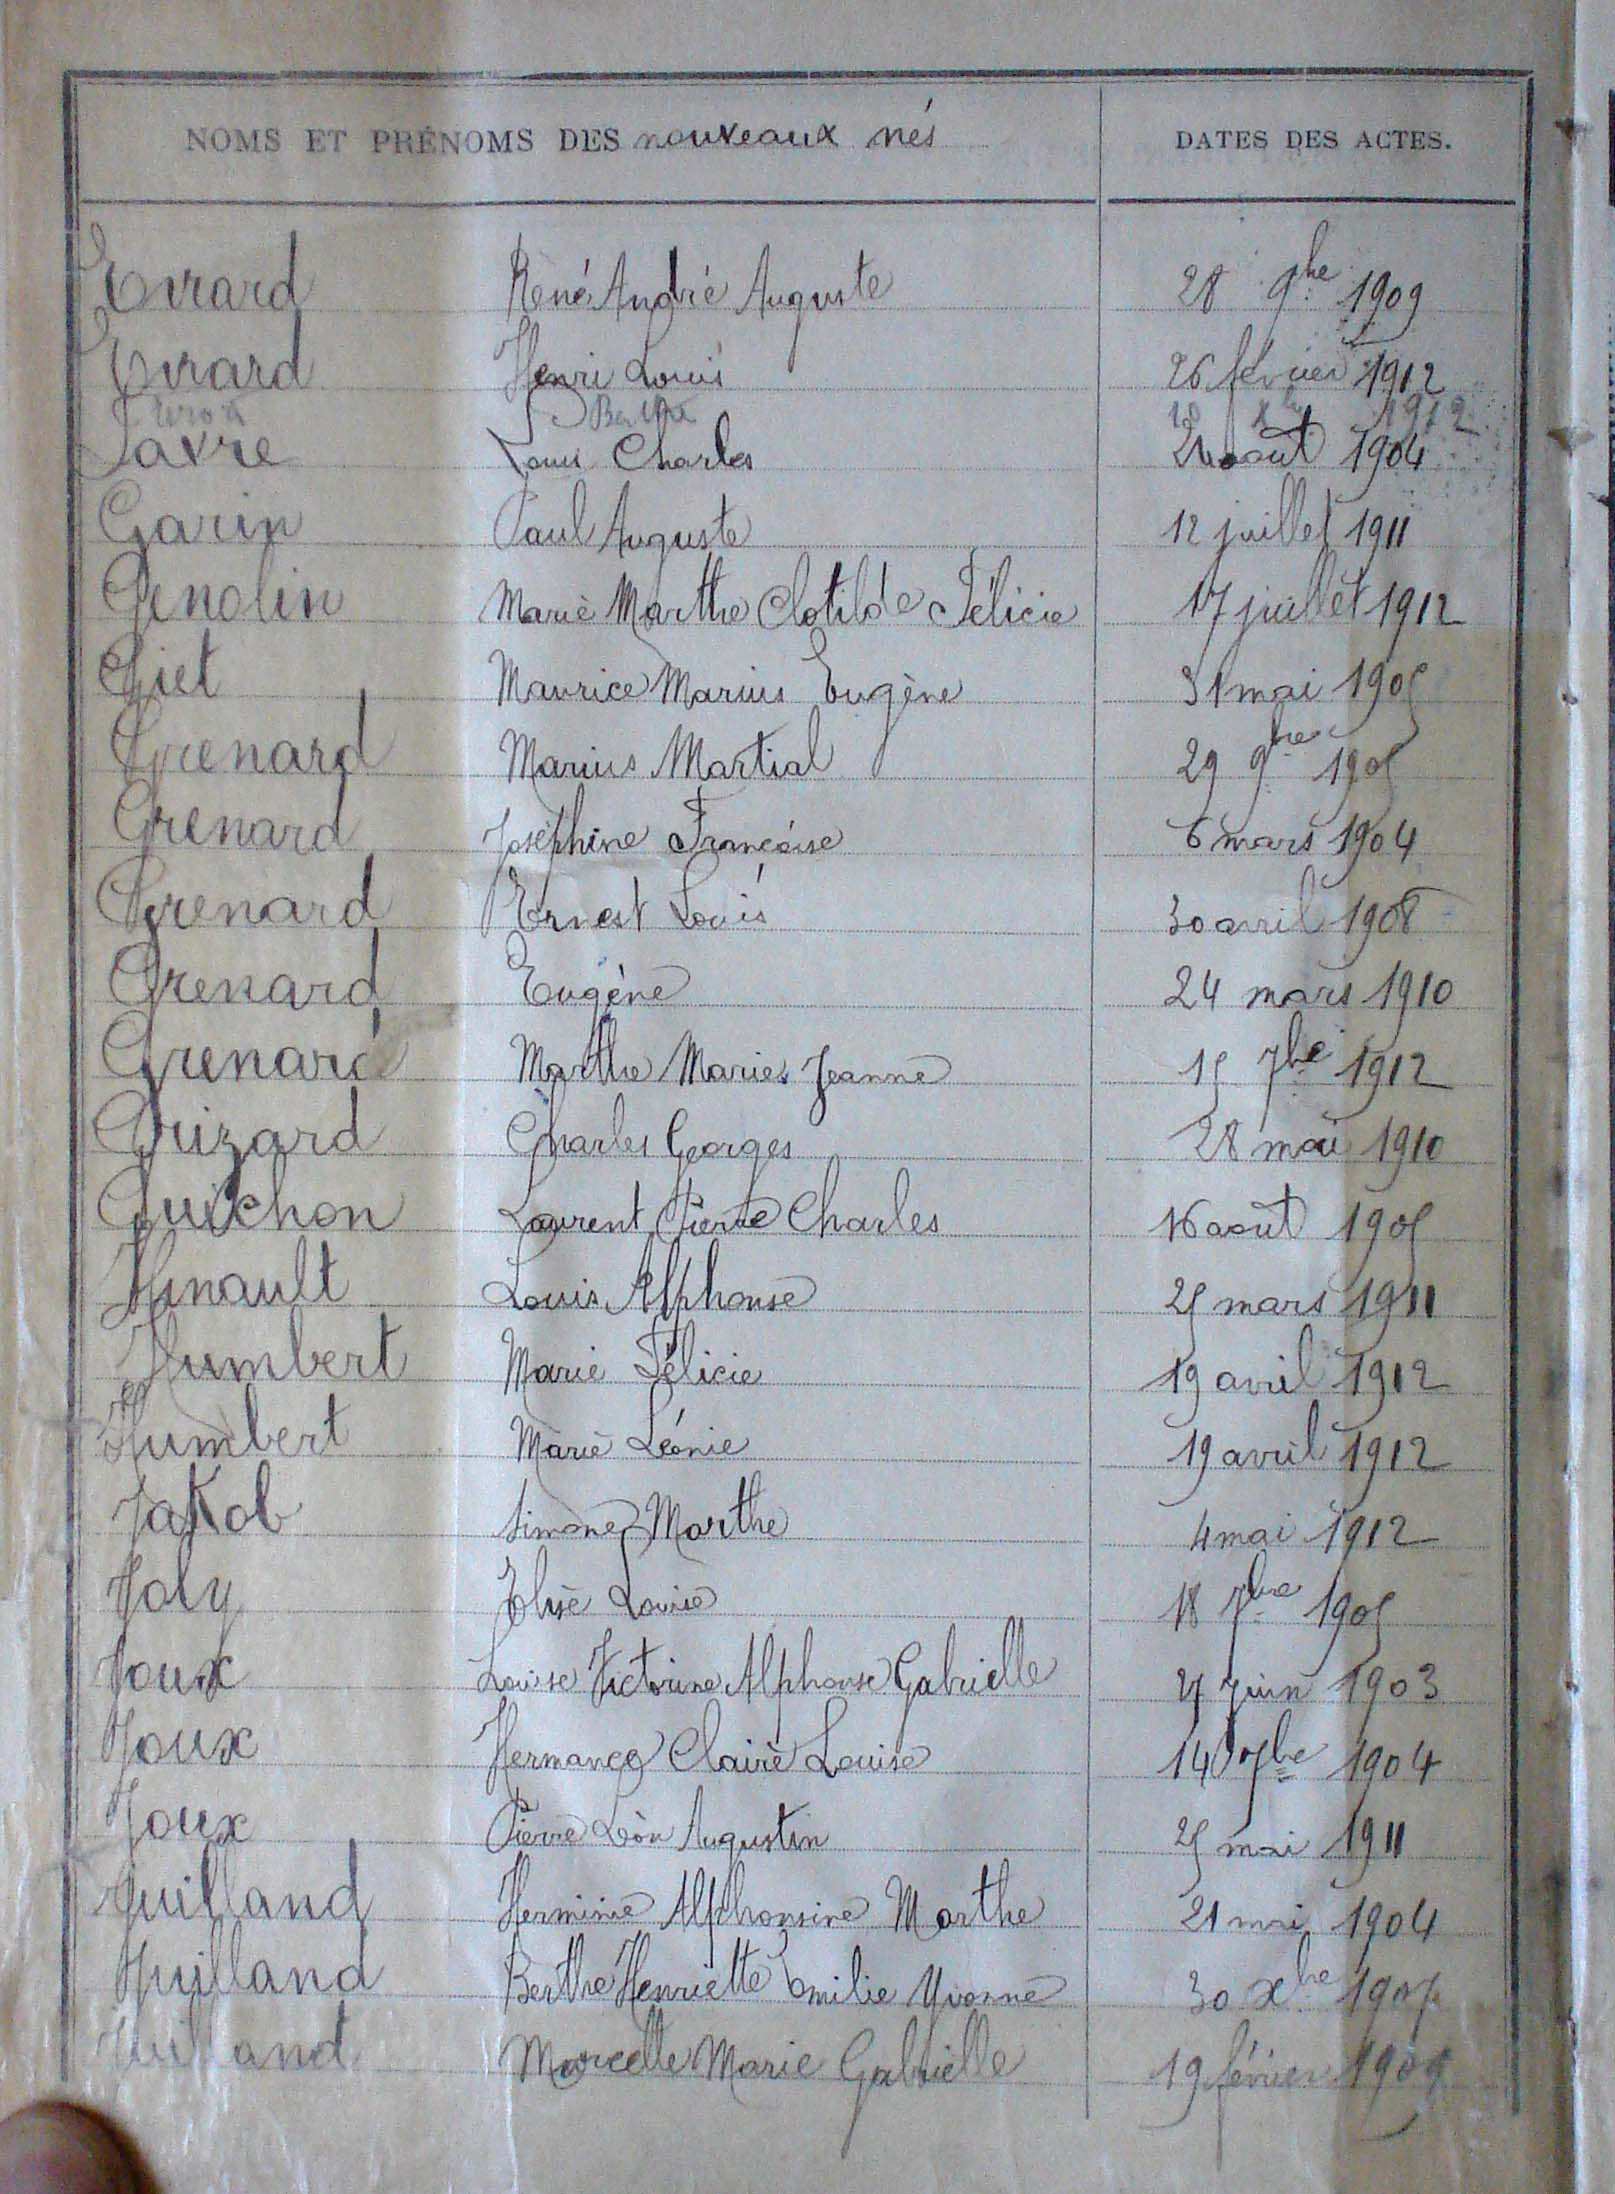 NOMS ET PRÉNOMS DES nouveaux nés DATES DES ACTES.
Evrard René André Auguste 28 9bre 1909
Evrard Henri Louis 26 février 1912
Berthe 1912
Favre Louis Charles août 1904
Garin Paul Auguste 12 juillet 1911
Genolin Marie Marthe Clotilde Félicie 17 juillet 1912
Giet Maurice Marius Eugène 31 mai 1905
Grenard Marius Martial 29 9bre 1905
Grenard Joséphine Françoise 6 mars 1904
Grenard Ernest Louis 30 avril 1908
Grenard Eugène 24 mars 1910
Grenard Marthe Marie Jeanne 15 7bre 1912
Grizard Charles Georges 28 mai 1910
Guichon Laurent Pierre Charles 16 août 1905
Hinault Louis Alphonse 25 mars 1911
Humbert Marie Félicie 19 avril 1912
Humbert Marie Léonie 19 avril 1912
Jakob Simone Marthe 4 mai 1912
Joly Elise Louise 18 7bre 1905
Joux Louise Victorine Alphonse Gabrielle juin 1903
Joux Hermance Claire Louise 14 7bre 1904
Joux Pierre Léon Augustin 25 mai 1911
Juilland Herminie Alphonsine Marthe 21 mai 1904
Juilland Berthe Henriette Emilie Yvonne 30 Xbre
Juilland Marcelle Marie Gabrielle 19 février 1909